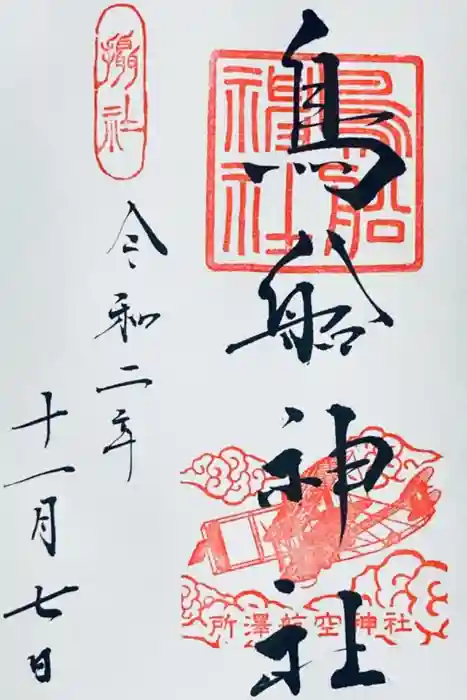 鳥船神社
鳥船神社
所澤航空神社
攝社
令和二年
十一月七日